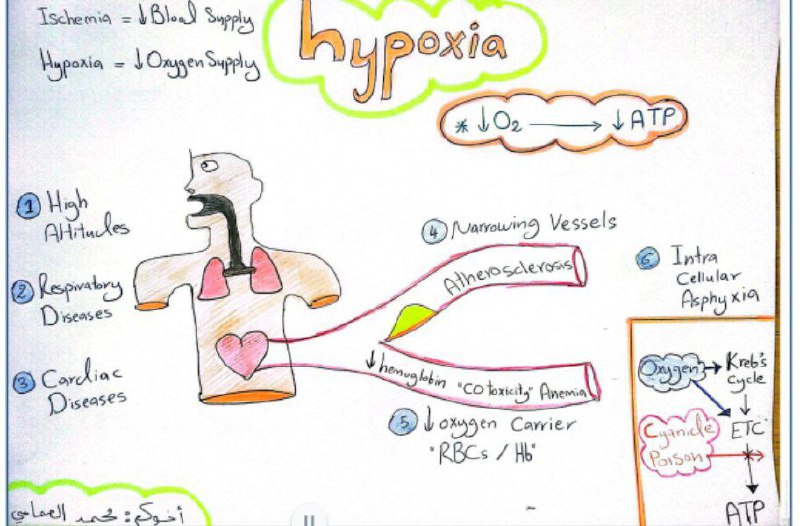 Ischemia = ↓ Blood Supply
Hypoxia = ↓ Oxygen Supply
hypoxia
* ↓O₂ → ↓ATP
1 High
Altitudes
2 Respiratory
Diseases
3 Cardiac
Diseases
4 Narrowing Vessels
Atherosclerosis
↓ hemoglobin "CO toxicity" Anemia
5 ↓ oxygen Carrier
"RBCs / Hb"
6 Intra
Cellular
Asphyxia
Oxygen → Kreb's
Cycle
↓
ETC
Cyanide
Poison
ATP
أخوكم: محمد